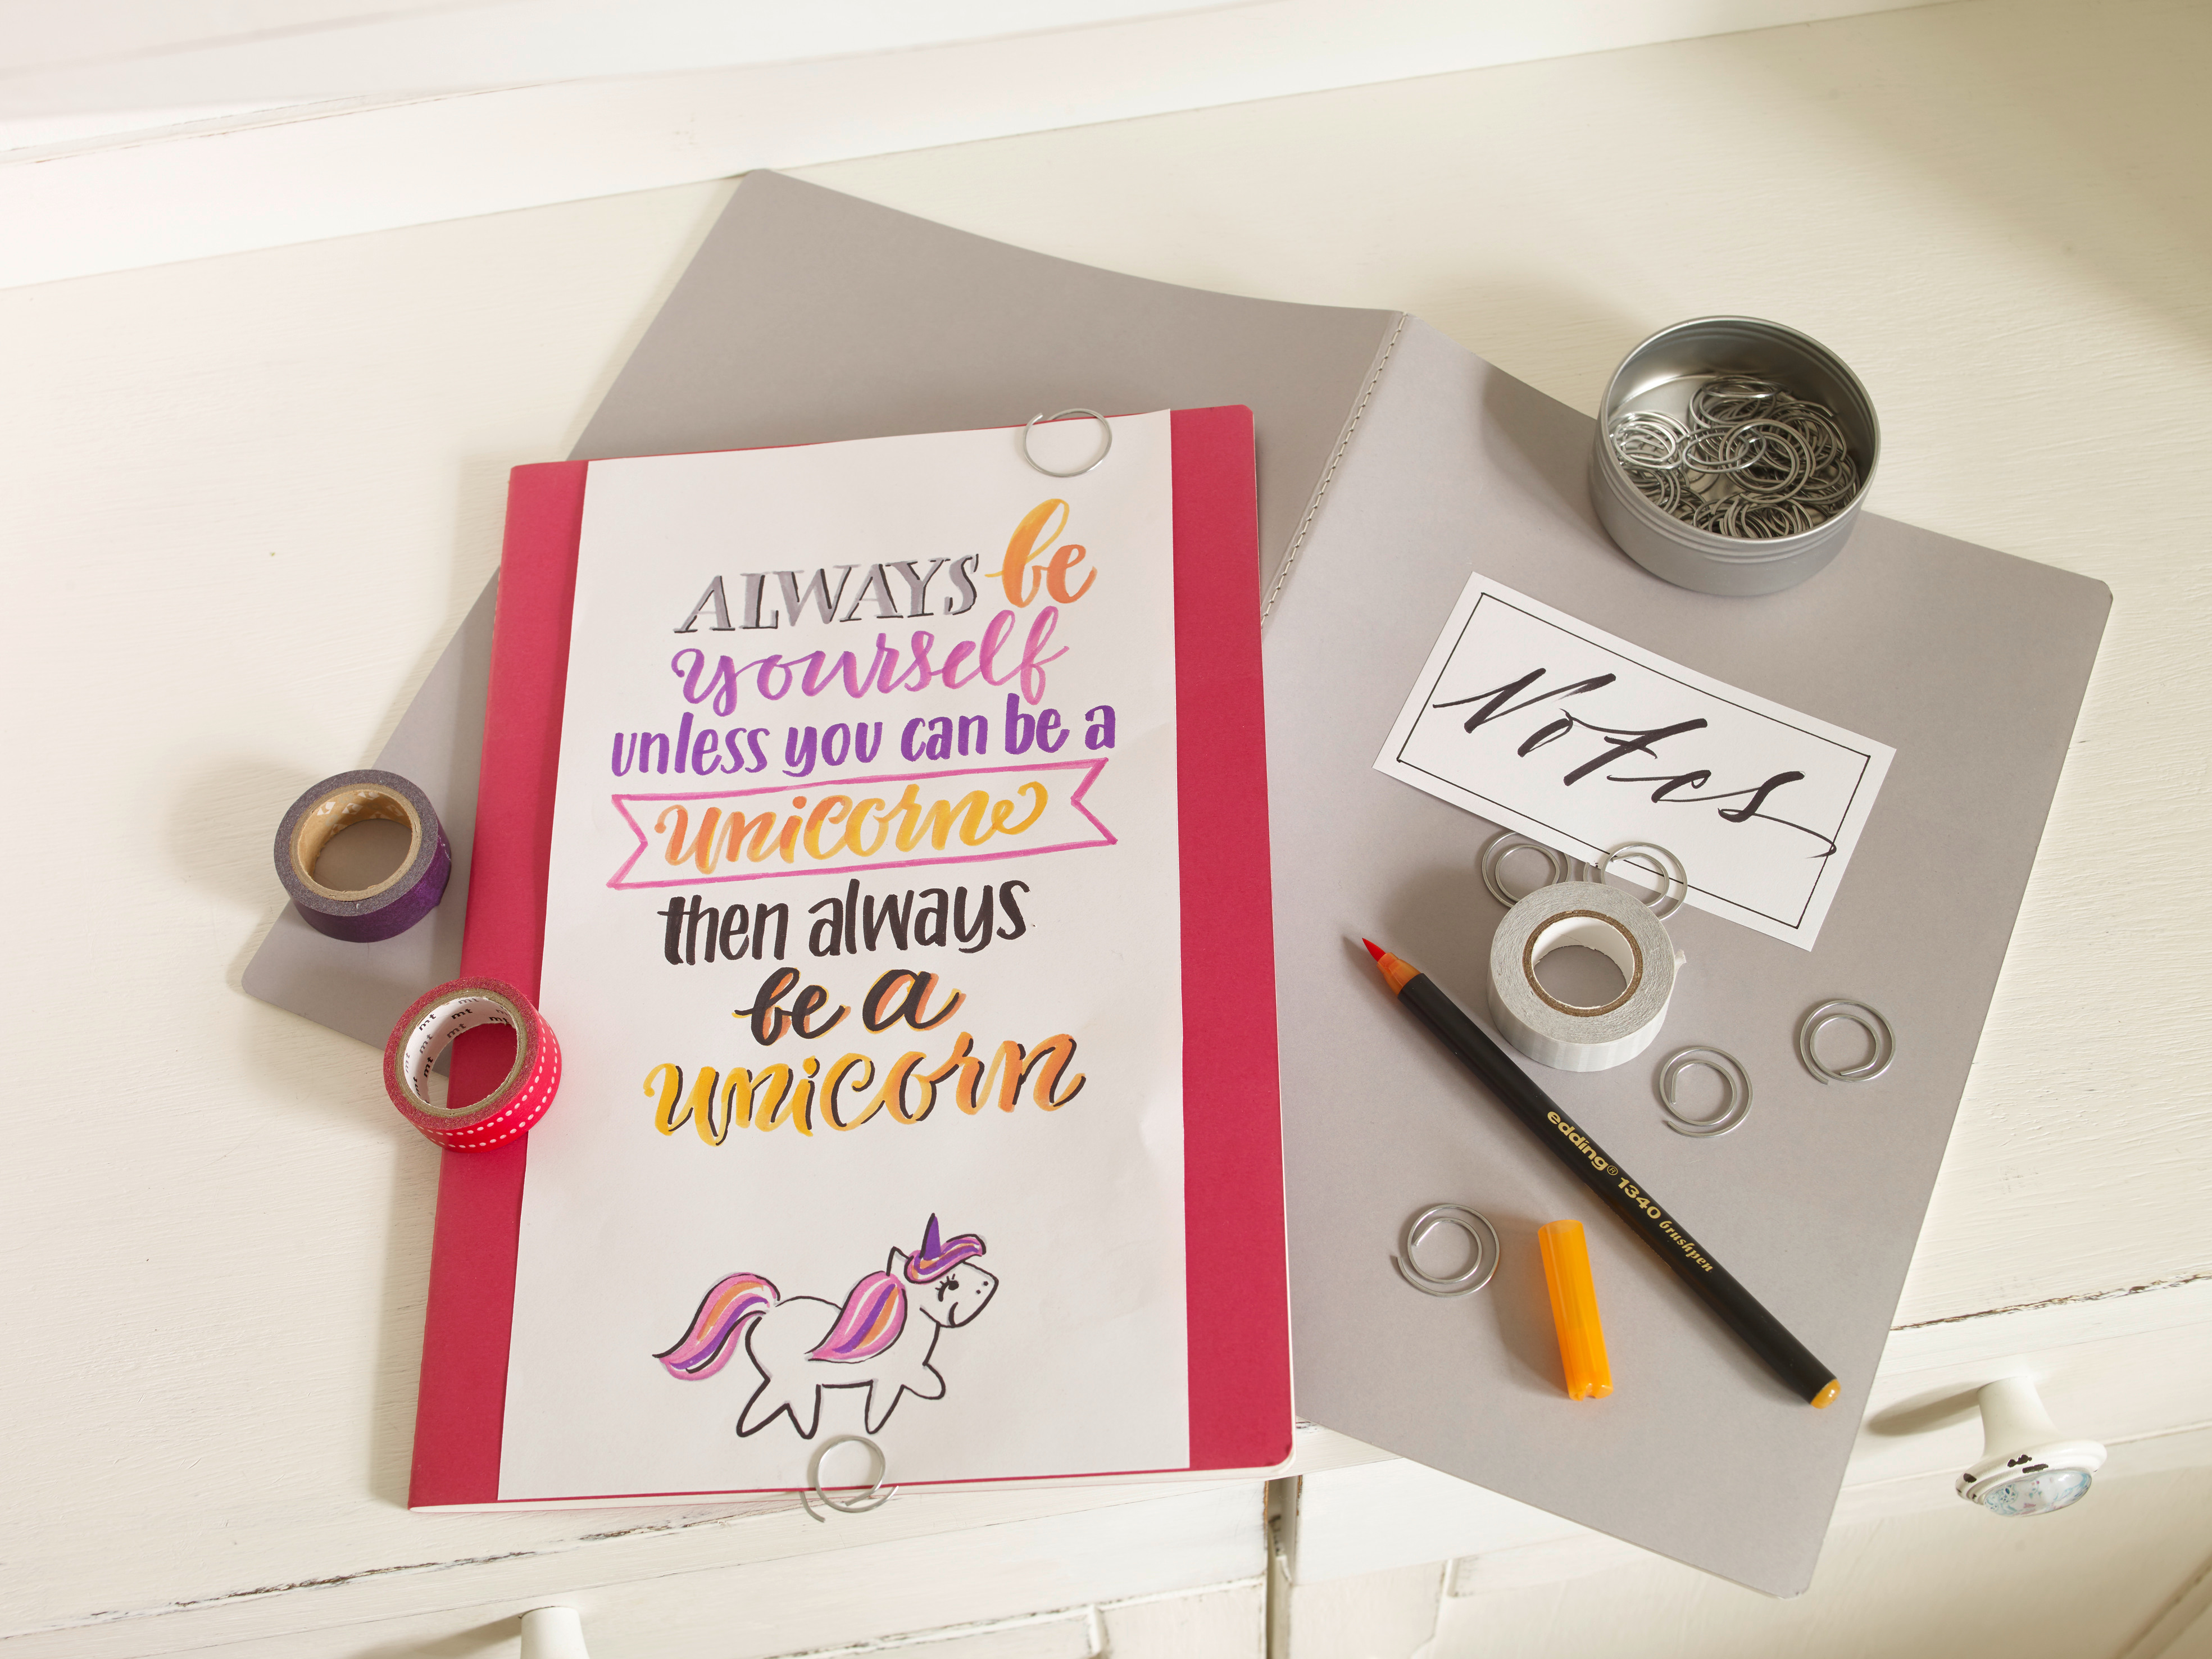 ALWAYS be
yourself
unless you can be a
unicorn
then always
be a
unicorn
Notes
edding® 1340 brushpen
mt mt mt mt mt mt